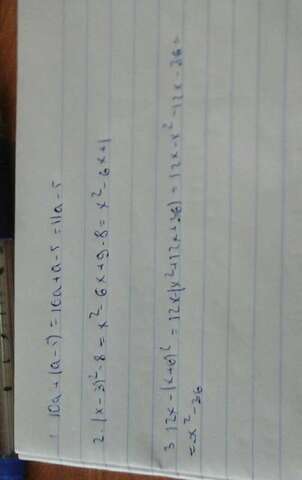 1. 10a+(a-5)=10a+a-5=11a-5
2. (x-3)²-8=x²-6x+9-8=x²-6x+1
3 12x-(x+6)²=12x(x²+12x+36)=12x-x²-12x-36=
=x²-36